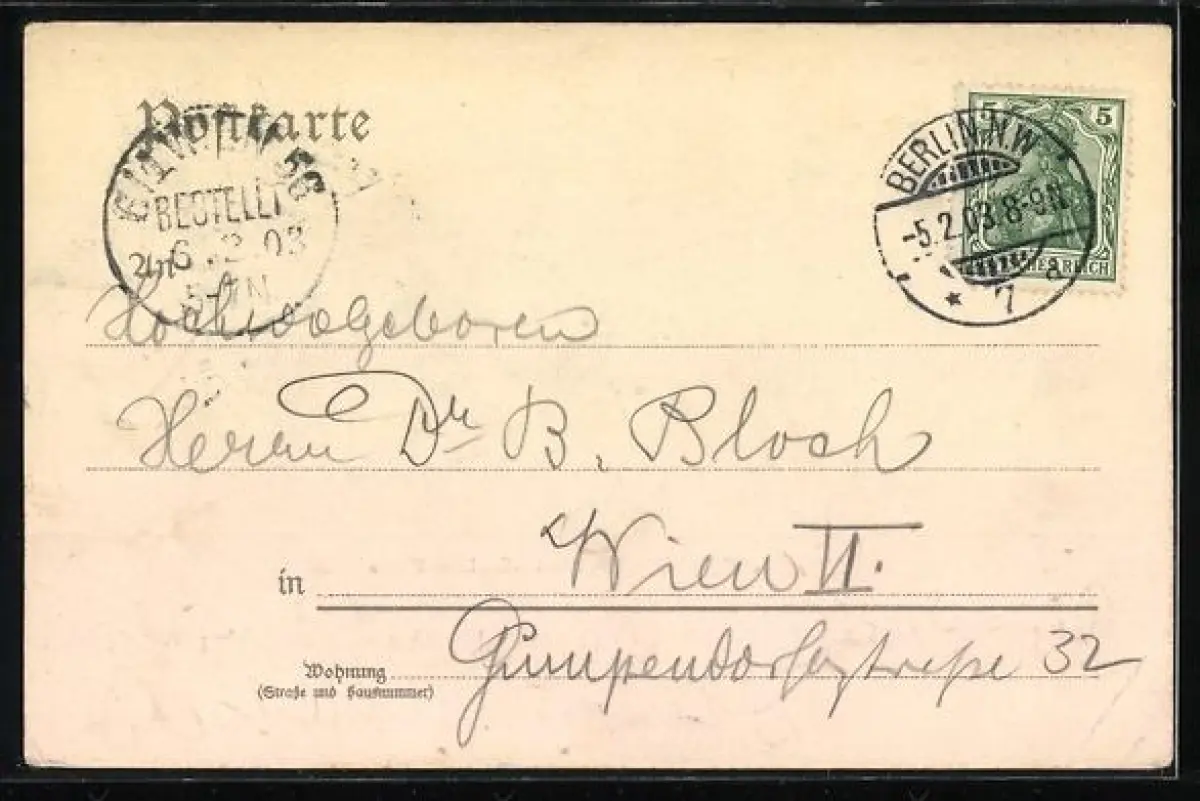 Postkarte
BESTELLT
6.2.03
5
5
BERLIN.N.W.
-5.2.03.8-9N.
* 7 a
REICH
An
Hochwolgeboren
Herrn Dr B. Bloch
in Wien VI.
Wohnung
(Straße und Hausnummer)
Gumpendorferstrasse 32